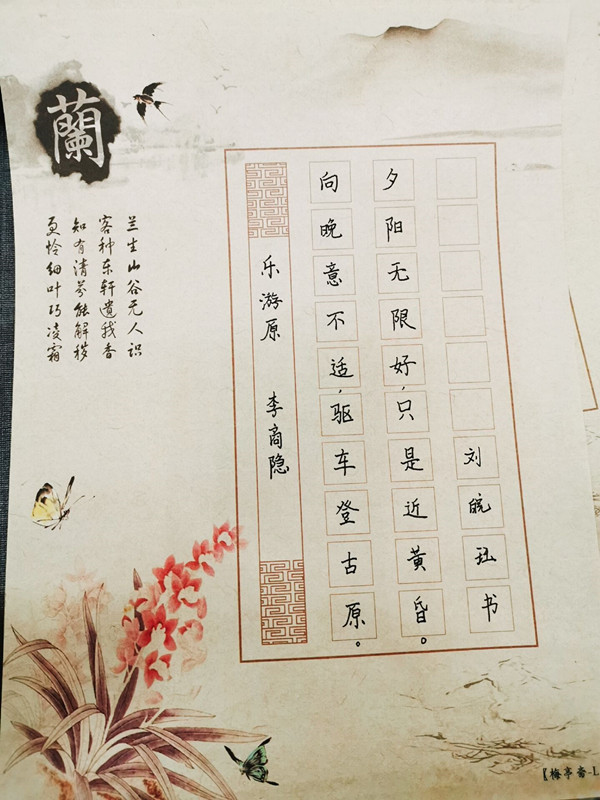 蘭
兰生山谷无人识
客种东轩遗我香
知有清芬能解秽
更怜细叶巧凌霜
乐游原 李商隐
向晚意不适,驱车登古原。
夕阳无限好,只是近黄昏。
刘皖珏书
【梅亭斋-L